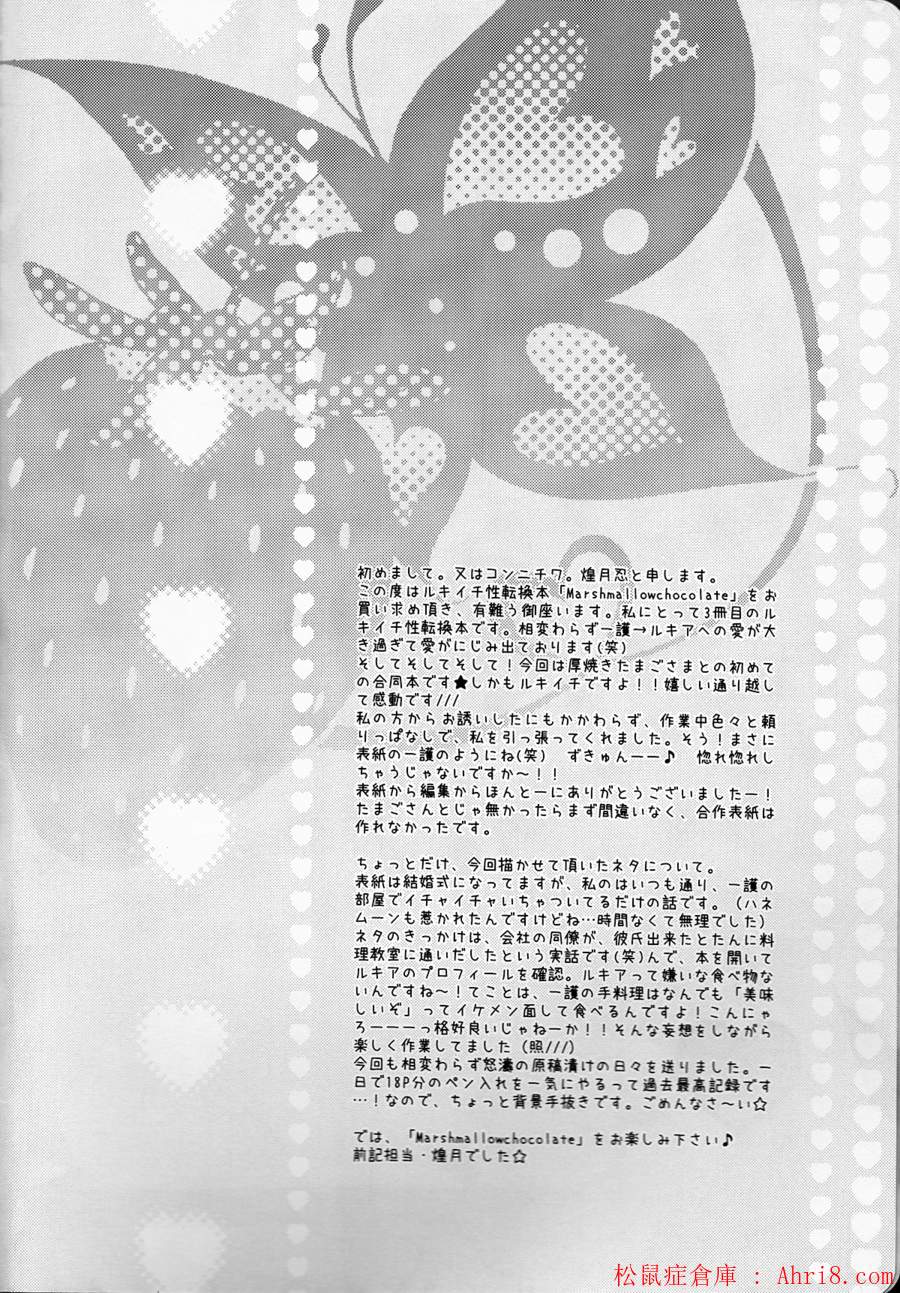 初めまして。又はコンニチワ。煌月忍と申します。
この度はルキイチ性転換本「Marshmallowchocolate」をお
買い求め頂き、有難う御座います。私にとって3冊目のル
キイチ性転換本です。相変わらず一護→ルキアへの愛が大
き過ぎて愛がにじみ出ております(笑)
そしてそしてそして！今回は厚焼きたまごさまとの初めて
の合同本です★しかもルキイチですよ！！嬉しい通り越し
て感動です///
私の方からお誘いしたにもかかわらず、作業中色々と頼
りっぱなしで、私を引っ張ってくれました。そう！まさに
表紙の一護のようにね(笑)　ずきゅんーー♪　惚れ惚れし
ちゃうじゃないですか～！！
表紙から編集からほんとーにありがとうございましたー！
たまごさんとじゃ無かったらまず間違いなく、合作表紙は
作れなかったです。
ちょっとだけ、今回描かせて頂いたネタについて。
表紙は結婚式になってますが、私のはいつも通り、一護の
部屋でイチャイチャいちゃついてるだけの話です。（ハネ
ムーンも惹かれたんですけどね…時間なくて無理でした）
ネタのきっかけは、会社の同僚が、彼氏出来たとたんに料
理教室に通いだしたという実話です(笑)んで、本を開いて
ルキアのプロフィールを確認。ルキアって嫌いな食べ物な
いんですね～！てことは、一護の手料理はなんでも「美味
しいぞ」ってイケメン面して食べるんですよ！こんにゃ
ろーーーっ格好良いじゃねーか！！そんな妄想をしながら
楽しく作業してました（照///）
今回も相変わらず怒濤の原稿漬けの日々を送りました。一
日で18P分のペン入れを一気にやるって過去最高記録です
…！なので、ちょっと背景手抜きです。ごめんなさ～い☆
では、「Marshmallowchocolate」をお楽しみ下さい♪
前記担当・煌月でした☆
松鼠症倉庫 : Ahri8.com